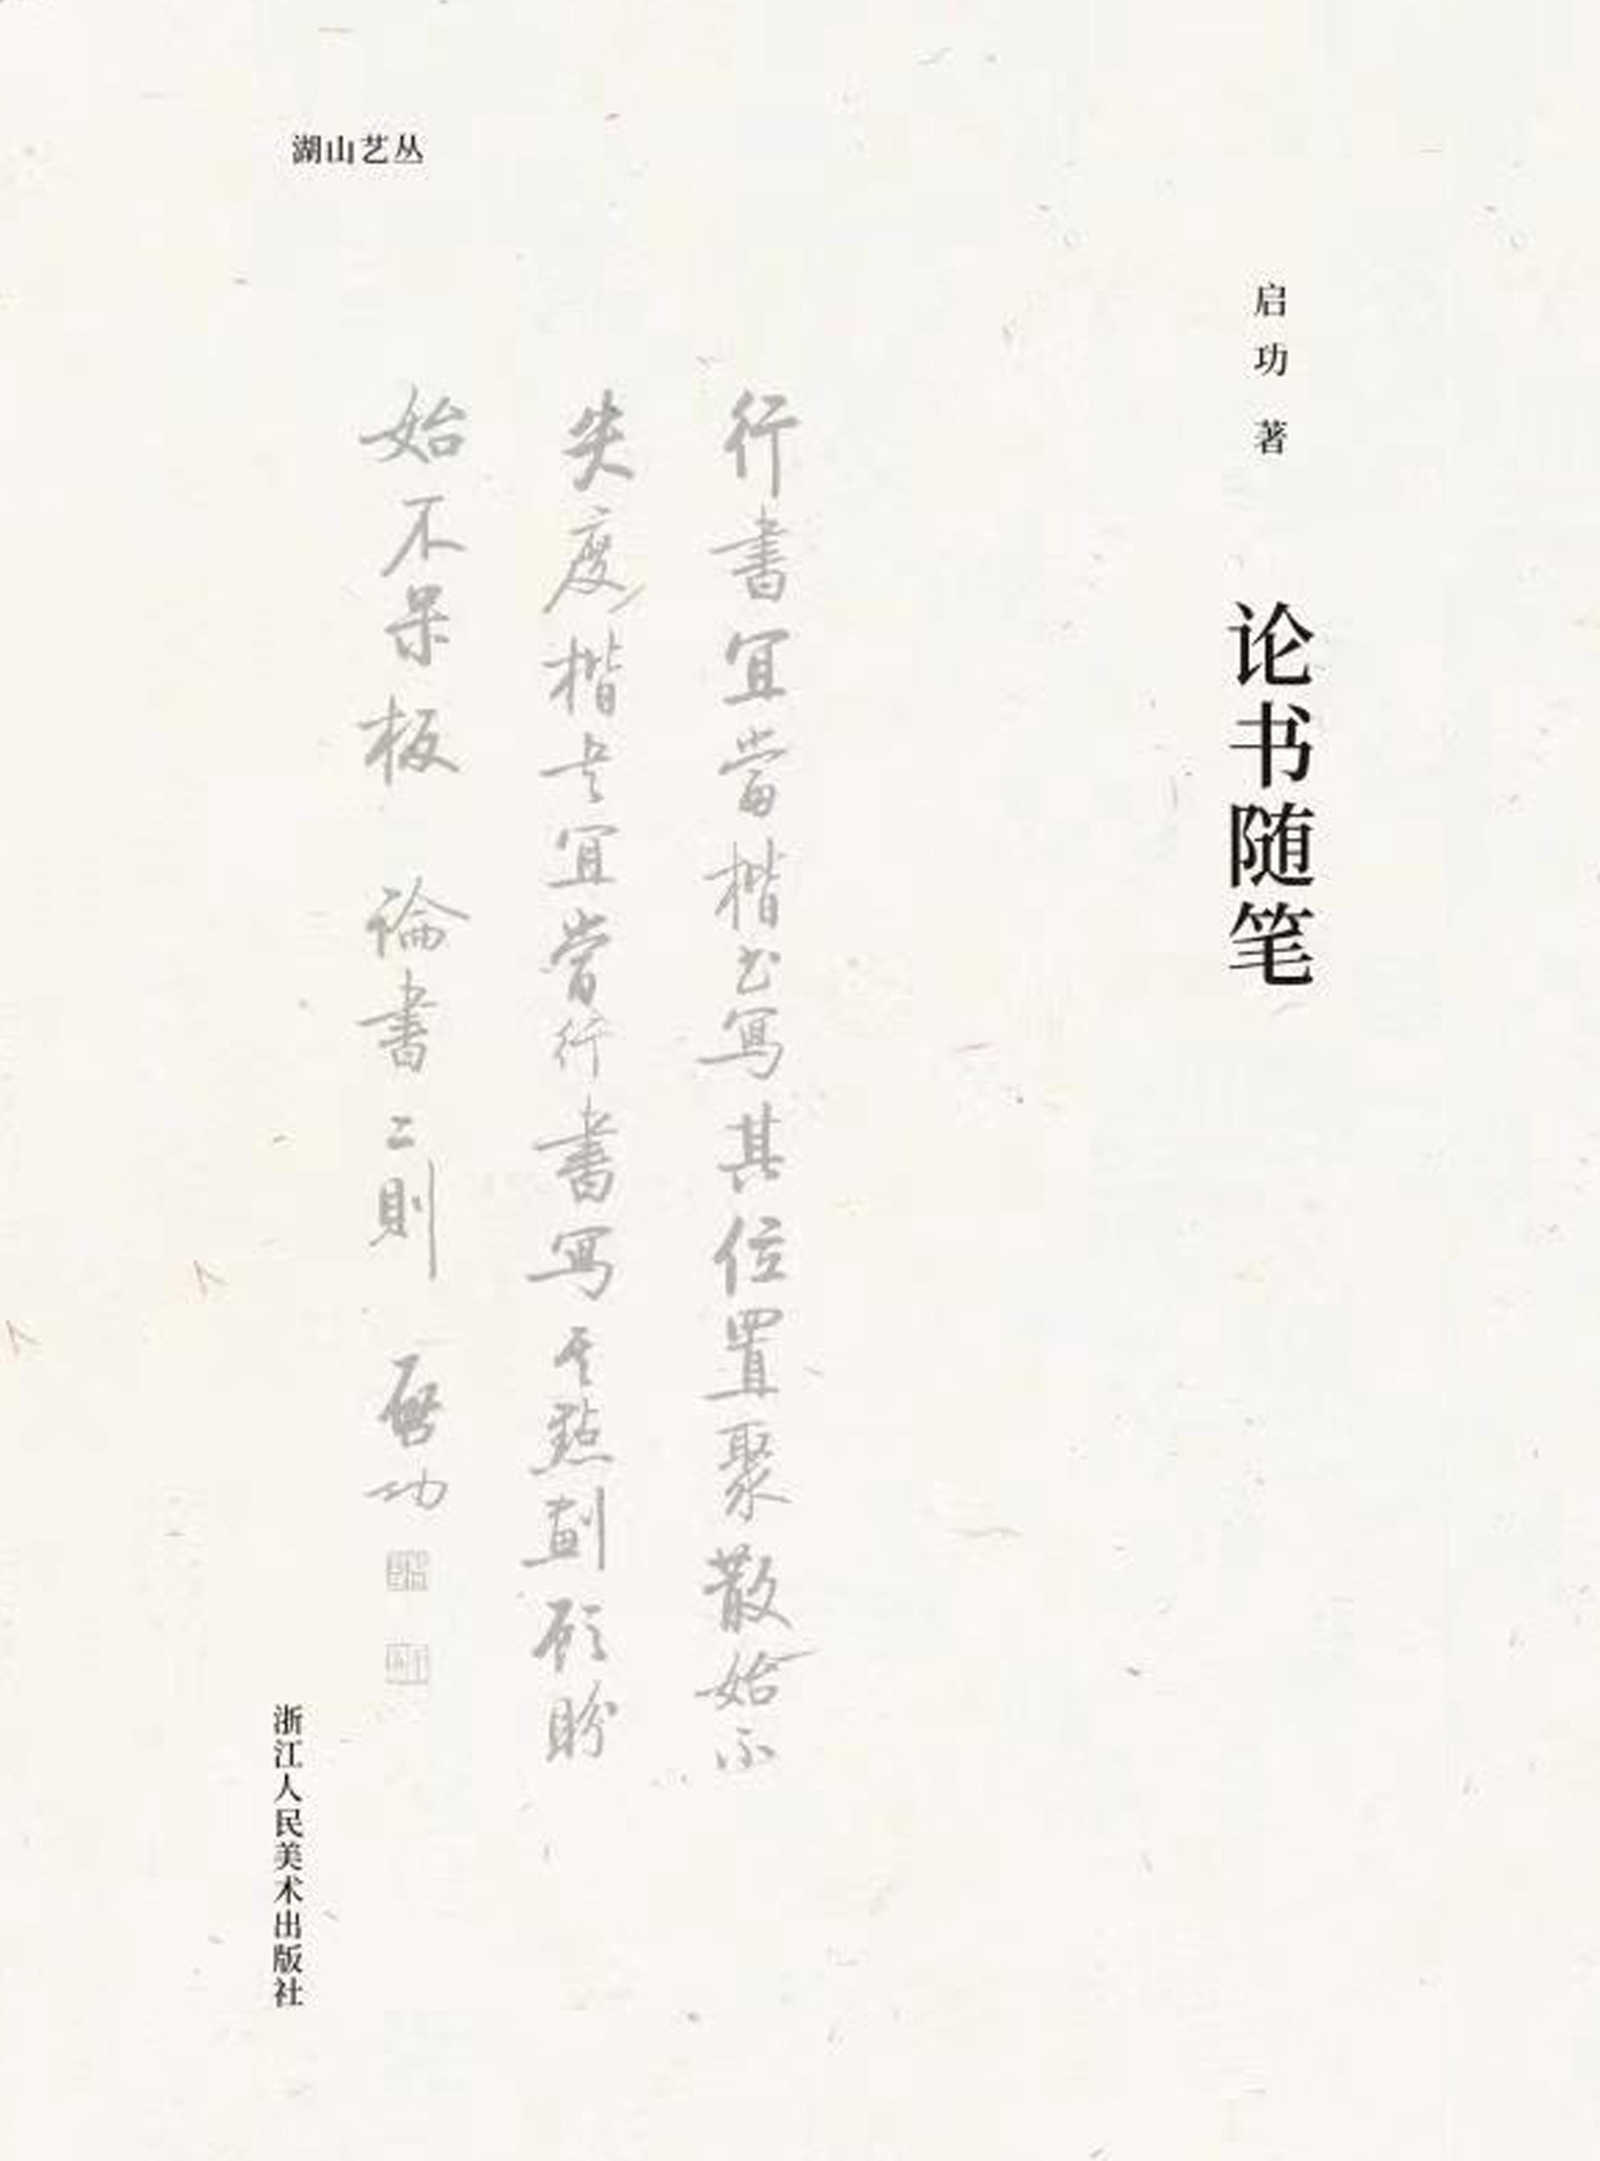 湖山艺丛
启功 著
论书随笔
行書宜當楷书寫其位置聚散始不
失度楷书宜當行書寫其點劃顧盼
始不呆板 論書二則 啓功
浙江人民美术出版社